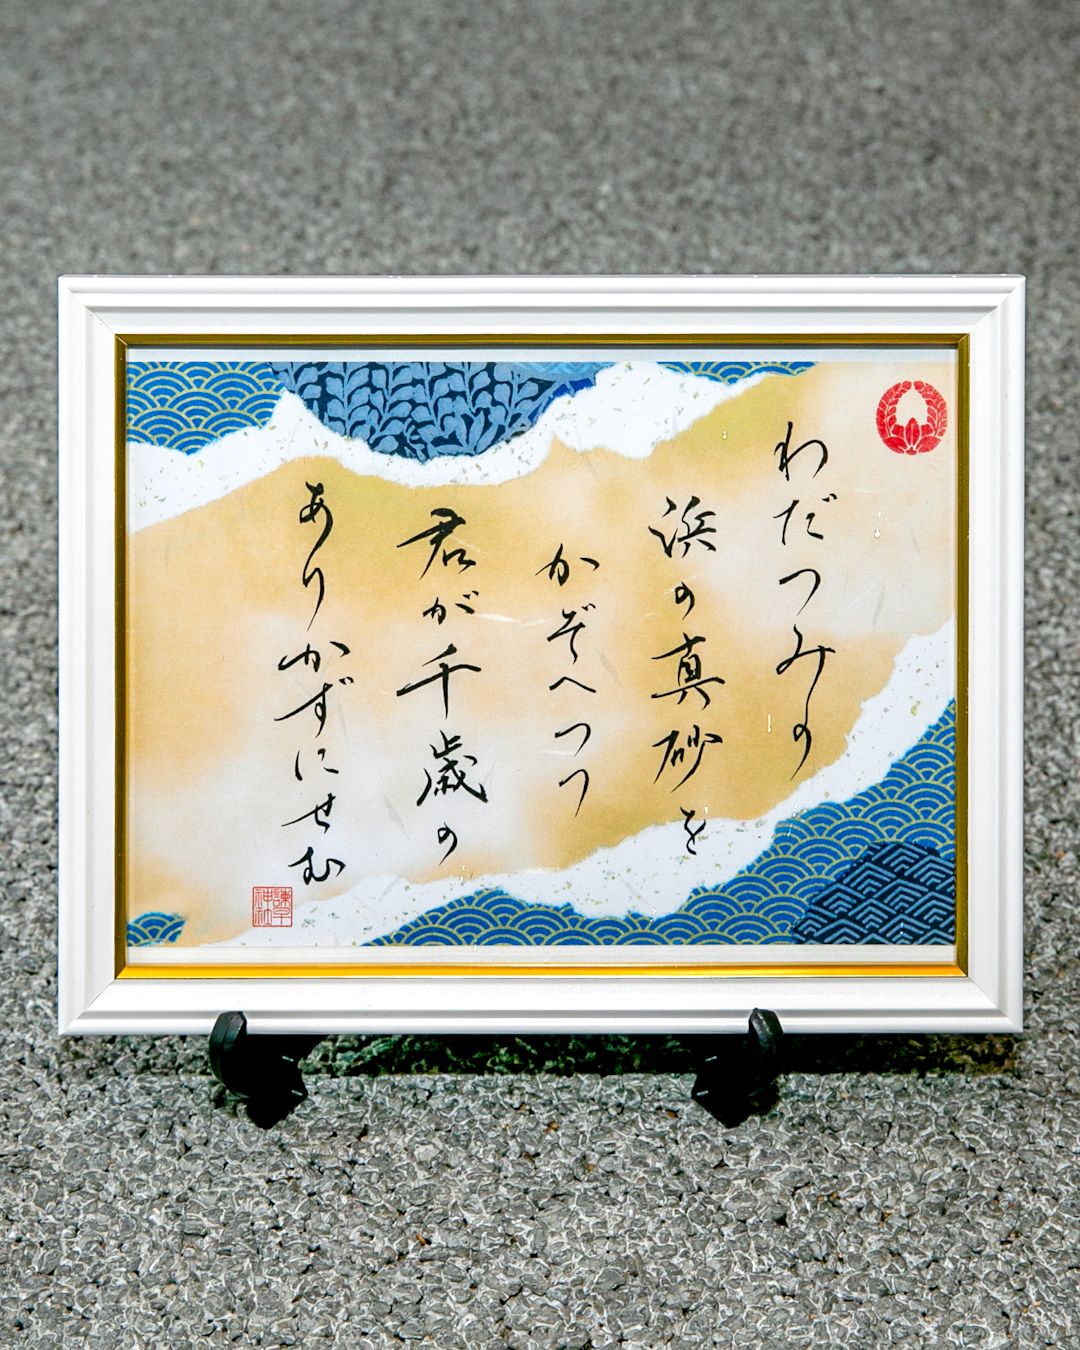 わだつみの
浜の真砂を
かぞへつつ
君が千歳の
ありかずにせむ
諫早
神社